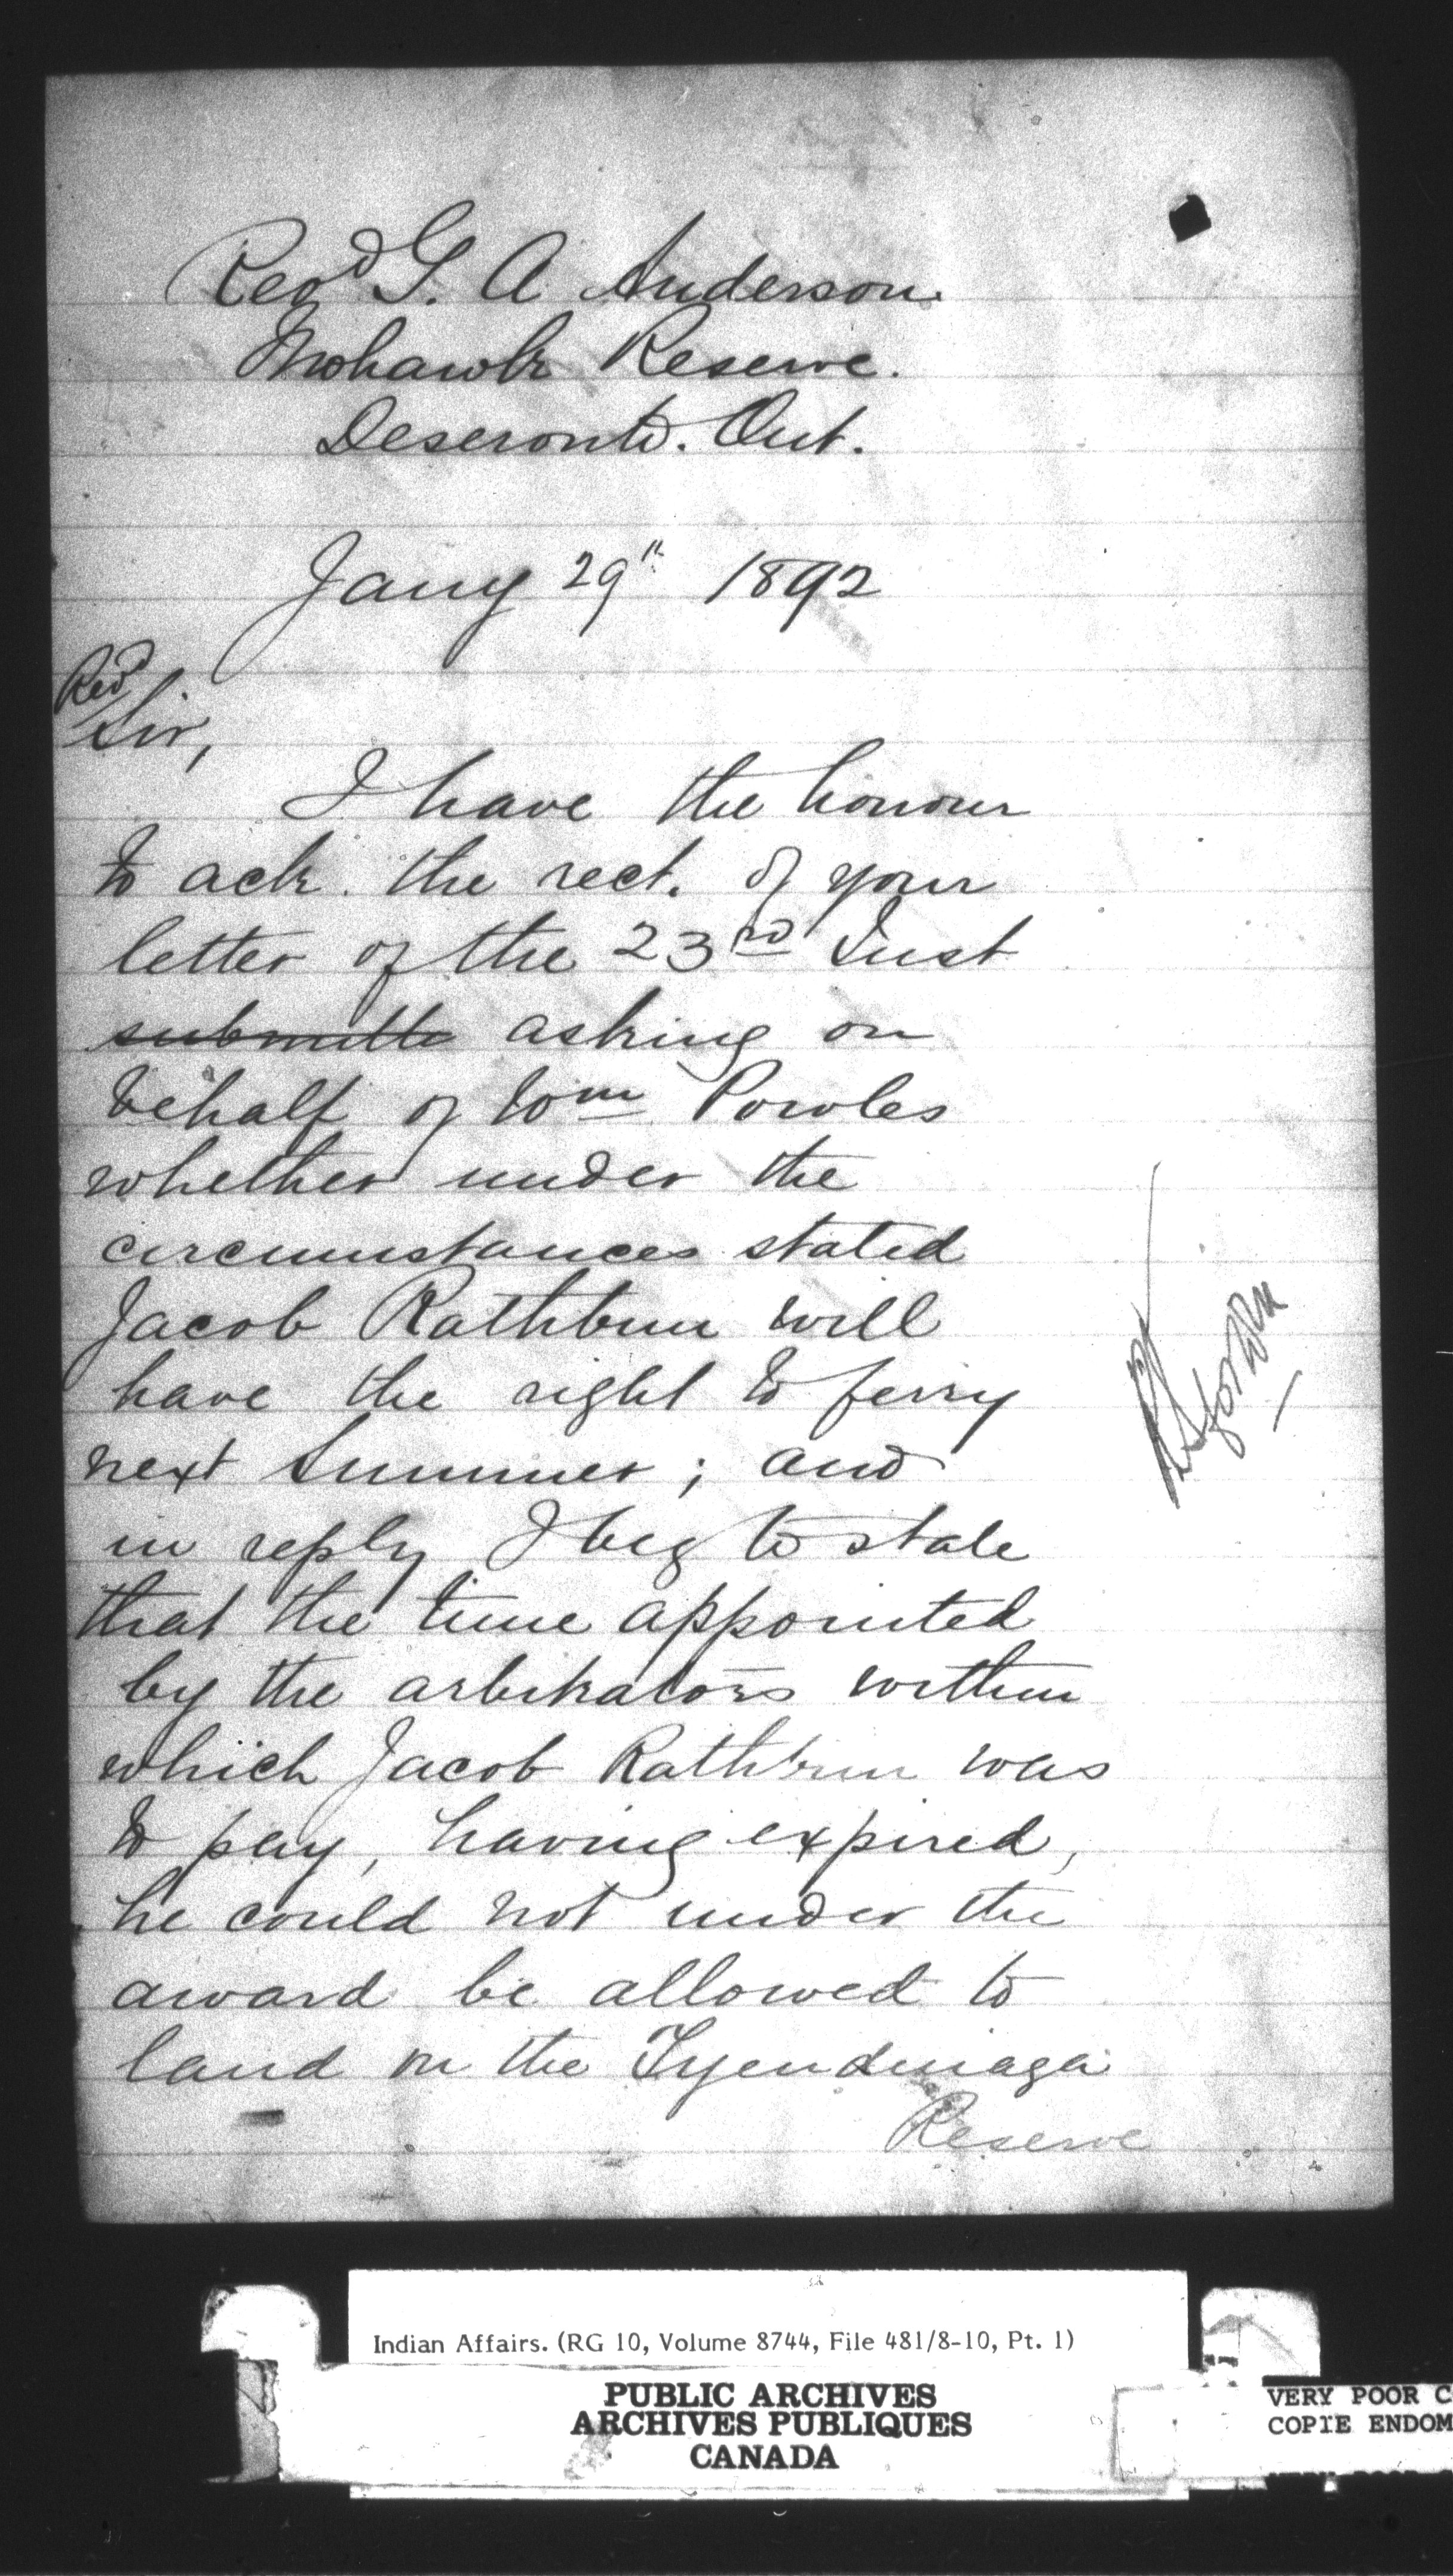 Revd G. A Anderson
Mohawk Reserve.
Deseronto. Ont.
Jany 29th 1892
Revd
Sir,
I have the honour
to ack. the rect. of your
letter of the 23rd Inst
submitte asking on
behalf of Wm Powles
whether under the
circumstances stated
Jacob Rathbun will
have the right to ferry
next Summer; and
in reply I beg to state
that the time appointed
by the arbitrators within
which Jacob Rathbun was
to pay, having expired,
he could not under the
award be allowed to
land on the Tyendinaga
Reserve
Indian Affairs. (RG 10, Volume 8744, File 481/8-10, Pt. 1)
PUBLIC ARCHIVES
ARCHIVES PUBLIQUES
CANADA
VERY POOR C
COPIE ENDOM